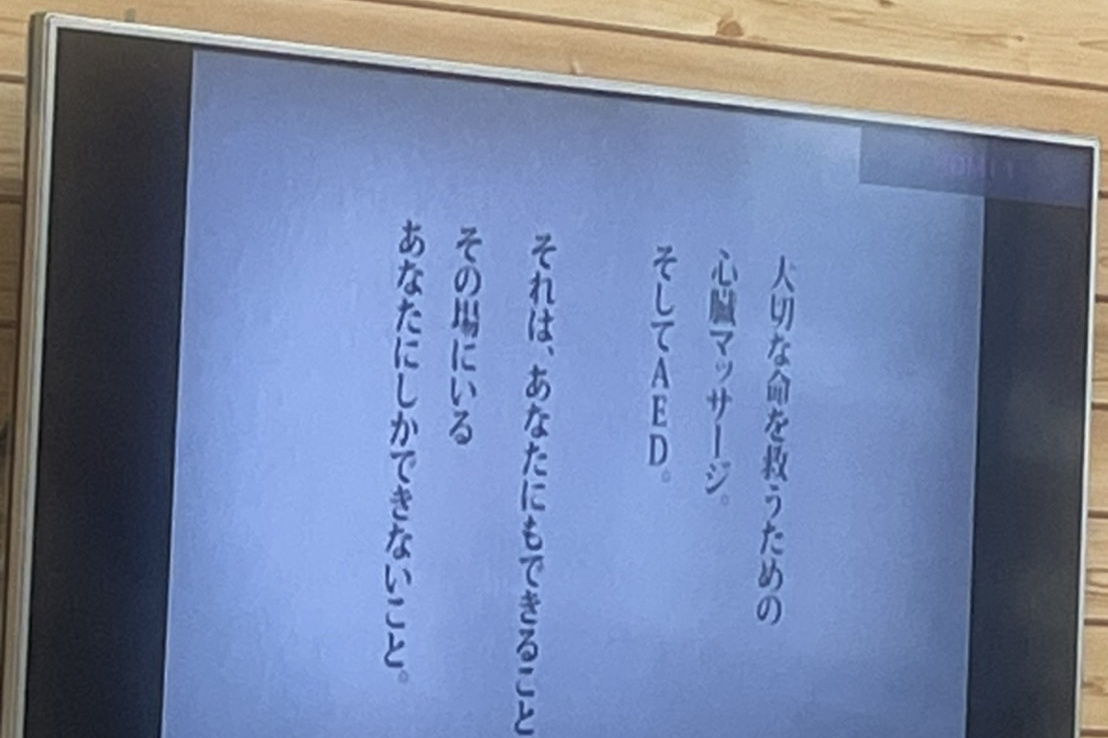 大切な命を救うための
心臓マッサージ。
そしてAED。
それは、あなたにもできること
その場にいる
あなたにしかできないこと。